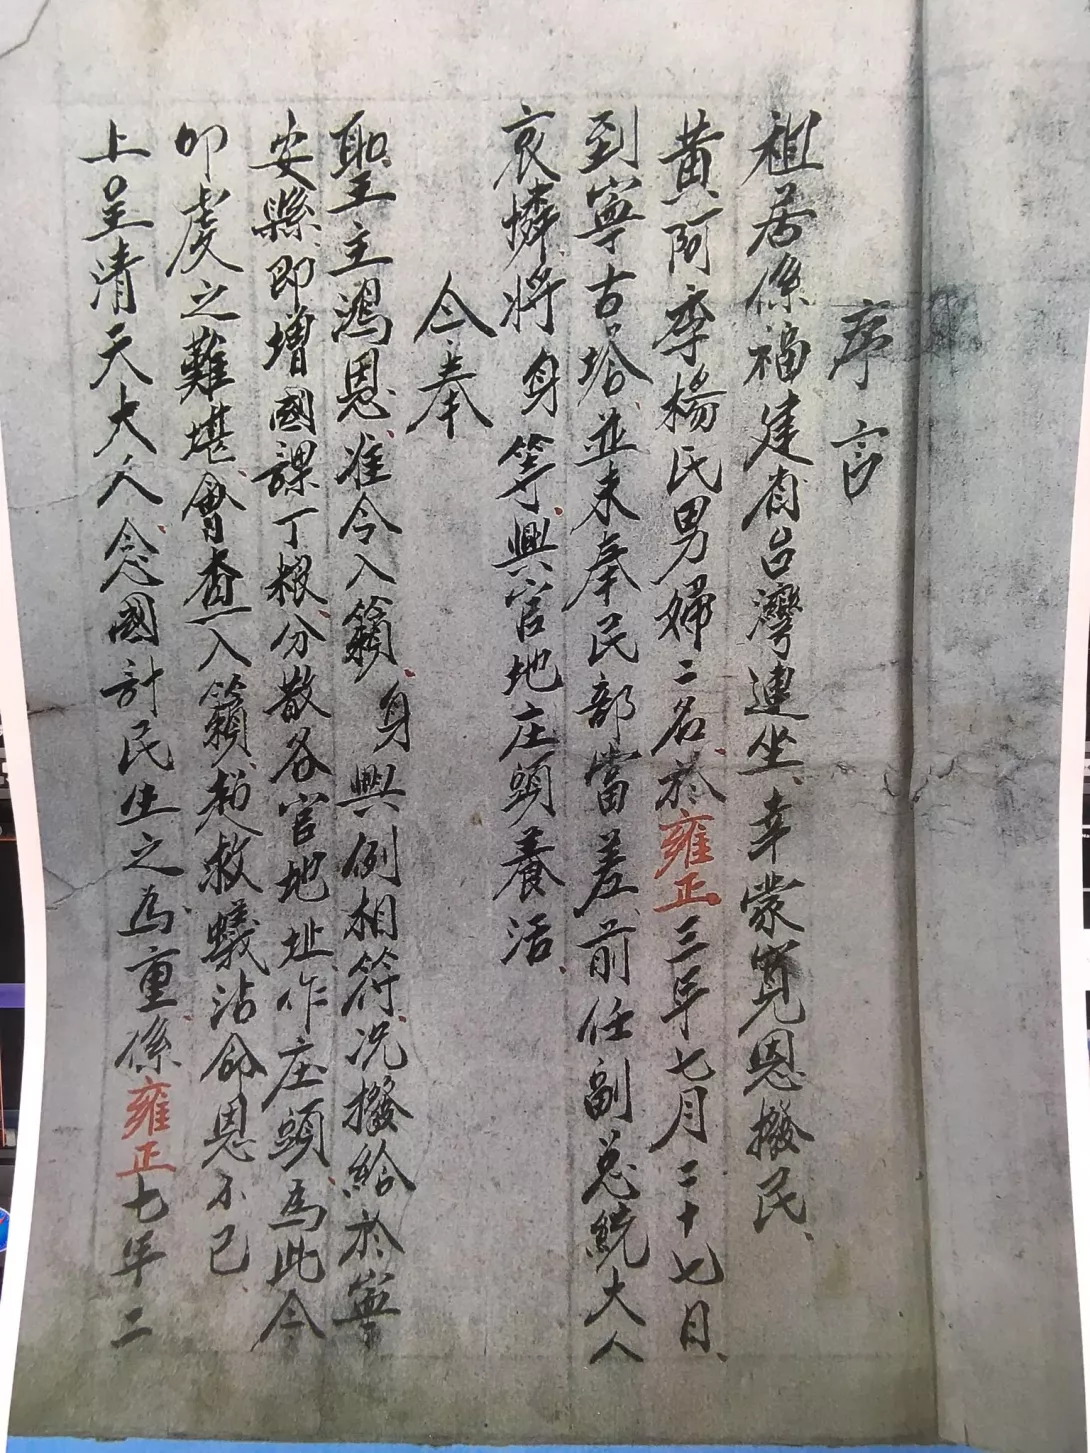 序言
祖居係福建省台灣連坐、幸蒙寬恩撥民、
黃阿李楊氏男婦二名、於雍正三年七月二十七日、
到寧古塔、並未奉民部當差、前任副总統大人
哀憐將身等興官地庄頭養活、
今奉
聖主鴻恩、准令入籍、身興例相符、况撥給於寧
安縣、即增國課丁根、分散各官地址作庄頭、為此今
叩虔之難堪、會查入籍、赵救蟻沾命恩不已
上呈清天大人、念國計民生之為重係雍正七年二